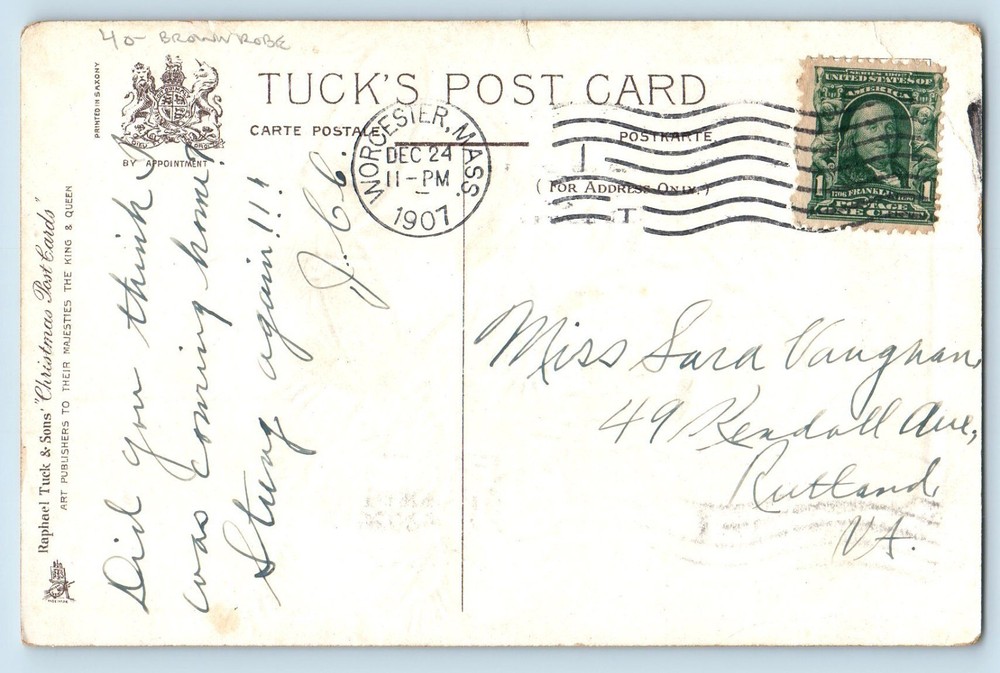 40- BROWN ROBE
PRINTED IN SAXONY
BY APPOINTMENT
TUCK'S POST CARD
CARTE POSTALE
POSTKARTE
(FOR ADDRESS ONLY.)
WORCESTER, MASS.
DEC 24
11-PM
1907
SERIES 1902
UNITED STATES OF
AMERICA
1
1
FRANKLIN
POSTAGE
ONE CENT
Raphael Tuck & Sons' "Christmas Post Cards"
ART PUBLISHERS TO THEIR MAJESTIES THE KING & QUEEN
Did you think I
was coming home?
Stung again!!!
J. C. C.
Miss Sara Vaughan,
49 Kendall Ave,
Rutland,
Vt.